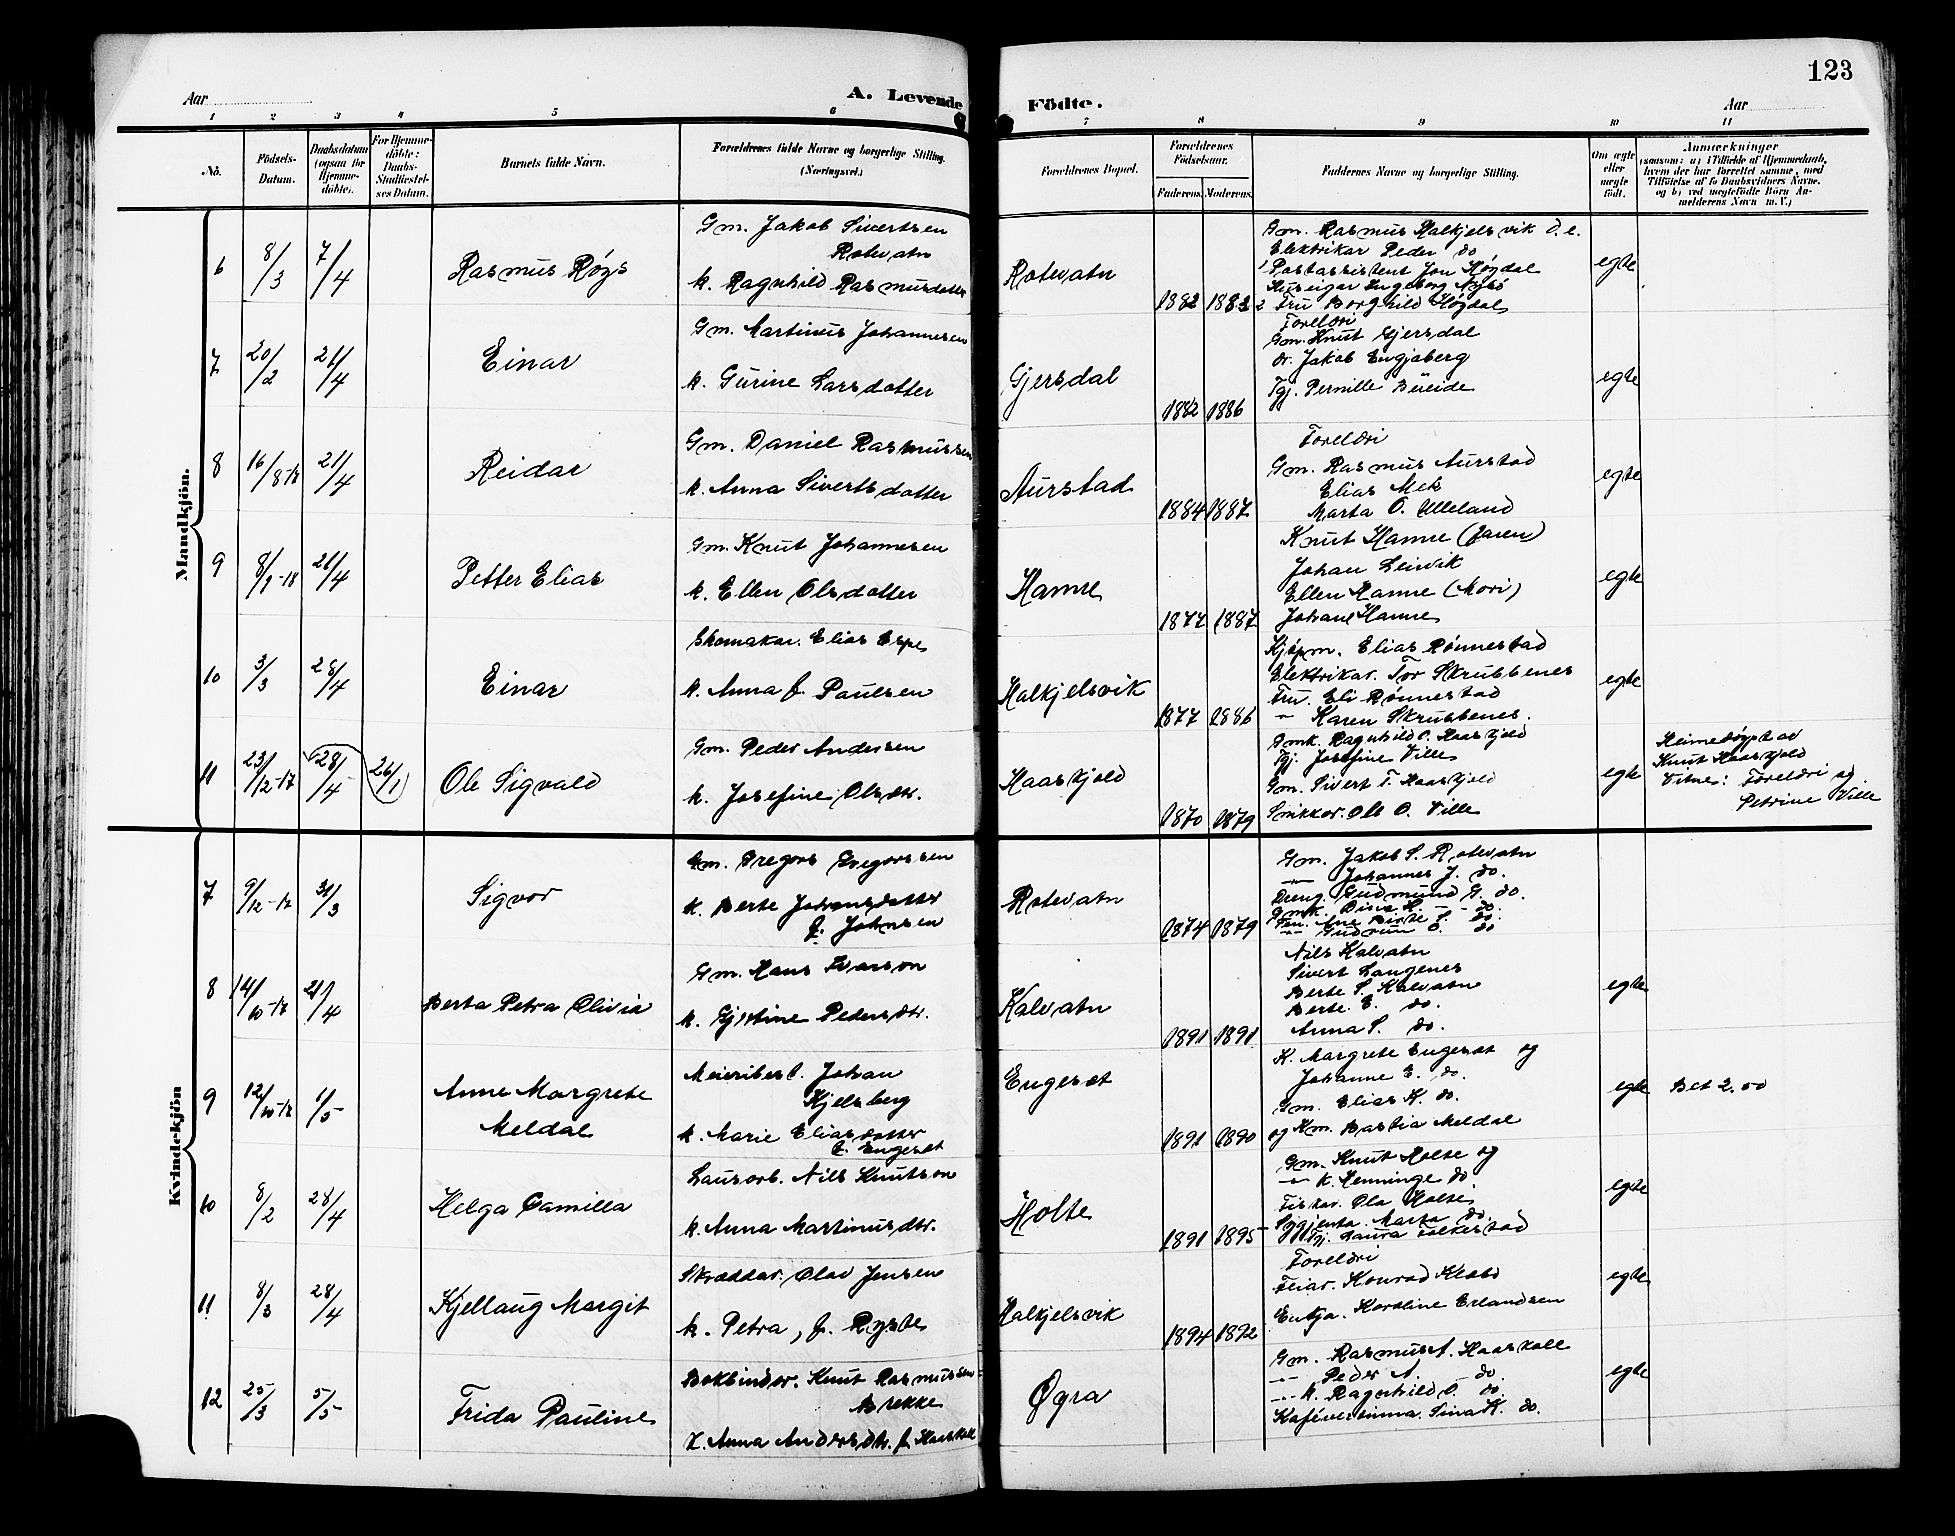 123
Aar
A. Levende Födte.
Aar
1 2 3 4 5 6 7 8 9 10 11
No.
Födsels-
Datum.
Daabsdatum
(ogsaa for
Hjemme-
döbte).
For Hjemme-
döbte:
Daabs-
Stadfæstel-
ses Datum.
Barnets fulde Navn.
Forældrenes fulde Navne og borgerlige Stilling.
(Næringsvei.)
Forældrenes Bopæl.
Forældrenes
Födselsaar.
Faderens. Moderens.
Faddernes Navne og borgerlige Stilling.
Om ægte
eller
uægte
födt.
Anmærkninger
(saasom: a) i Tilfælde af Hjemmedaab,
hvem der har forrettet samme, med
Tilföielse af to Daabsvidners Navne,
og b) ved uægtefödte Börn An-
melderens Navn m. V.)
Mandkjön.
6 8/3 7/4 Rasmus Røys
Gm. Jakob Sivertsen
Rotevatn
k. Ragnhild Rasmusdotter
Rotevatn 1882 1882
Gm. Rasmus Halkjelsvik O. e.
Elektrikar Peder do
Postassistent Jon Høgdal
Huseigar Ingeborg
Fru Borghild Høgdal
egte
7 20/2 21/4 Einar
Gm. Martinus Johannesen
k. Gurine Larsdotter
Gjersdal 1882 1886
Foreldri
Gm. Knut Gjersdal
dr. Jakob Engjaberg
Tgj. Pernille Bueide
egte
8 16/8-17 21/4 Reidar
Gm. Daniel Rasmussen
k. Anna Sivertsdotter
Aurstad 1884 1887
Foreldri
Gm. Rasmus Aurstad
Elias Mek
Marta O. Ulleland
egte
9 8/9-18 21/4 Petter Elias
Gm. Knut Johannesen
k. Ellen Olsdotter
Hamre 1877 1887
Knut Hamre (faren)
Johan Leirvik
Ellen Hamre (Mori)
Johane Hamre
egte
10 3/3 28/4 Einar
Skomakar. Elias Espe
k. Anna f. Paulsen
Halkjelsvik 1877 1886
Kjøpm. Elias Rønnestad
Elektrikar. Tor Skrubbenes
Fru. Eli Rønnestad
" Karen Skrubbenes.
egte
11 23/12-17 28/4 26/1 Ole Sigvald
Gm. Peder Andersen
k. Josefine Olsdtr.
Haaskjold 1870 1879
Gmk. Ragnhild O. Haaskjold
Tgj. Josefine Ville
Gm. Sivert T. Haaskjold
Snikkar. Ole O. Ville
egte
Heimedøypt av
Knut Haaskjold
Vitne: Foreldri og
Petrine Ville
Kvindekjön
7 9/12-17 31/3 Sigvor
Gm. Gregors Gregorssen
k. Berte Johansdotter
f. Johnsen
Rotevatn 1874 1879
Gm. Jakob S. Rotevatn
" Johannes J. do.
Dreng Gudmund G. do.
Gmk. do.
do.
" Gudrun do
8 14/10-17 21/4 Berta Petra Olivia
Gm. Hans Ivarson
k. Gjertine Pedersdtr.
Kalvatn 1891 1891
Nils Kalvatn
Sivert Langenes
Berte S. Kalvatne
Berte E. do.
Anna S. do.
egte
9 12/10-17 1/5 Anne Margrete
Meldal
Meieribest. Johan
Kjelsberg
k. Marie Eliasdotter
f. Engeset
Engeset 1891 1890
K. Margrete Engeset og
Johanne E. do.
Gm. Elias K. do.
og Km. Bastia Meldal
egte
Bet 2.00
10 8/2 28/4 Helga Camilla
Lausarb. Nils Knutson
k. Anna Martinusdtr.
Holte 1891 1895
Gm. Knut Holte og
" k. Henninge do
Fiskar. Ola Holte
Marta do.
Tgj. Laura Folkestad
egte
11 8/3 28/4 Kjellaug Margit
Skræddar. Olav Jensen
k. Petra, f. Ryste
Halkjelsvik 1894 1892
Foreldri
Feiar. Konrad Klabo
Enkja. Karoline Erlandsen
egte
12 25/3 5/5 Frida Pauline
Bokbindar. Knut Rasmussen
Brekke
k. Anna Andersdtr. f. Haaskoll
Øgra
Gm. Rasmus A. Haaskoll
" Peder A. do.
" k. Ragnhild O. do.
Kafévertinna. Sina K. do.
egte